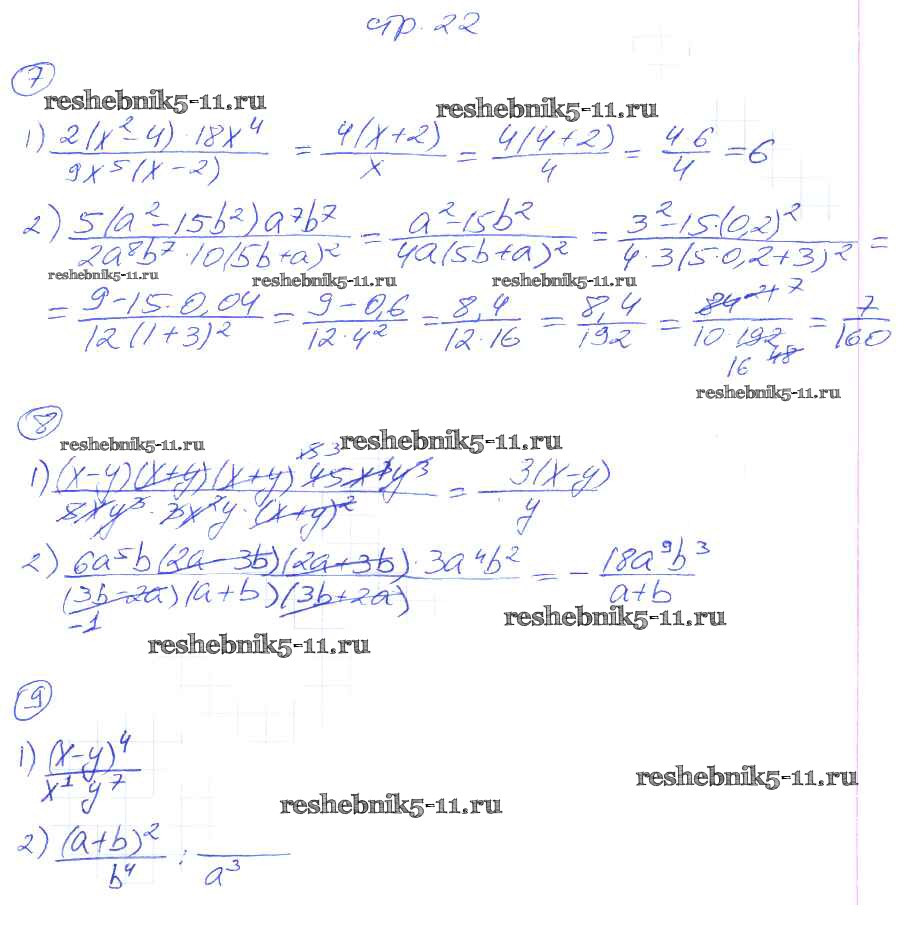 стр. 22
7
reshebnik5-11.ru reshebnik5-11.ru
1) 2(x²-4)·18x⁴ / 9x⁵(x-2) = 4(x+2) / x = 4(4+2) / 4 = 4·6 / 4 = 6
2) 5(a²-15b²)a⁷b⁷ / 2a⁸b⁷·10(5b+a)² = a²-15b² / 4a(5b+a)² = 3²-15·(0,2)² / 4·3(5·0,2+3)² =
reshebnik5-11.ru reshebnik5-11.ru reshebnik5-11.ru
= 9-15·0,04 / 12(1+3)² = 9-0,6 / 12·4² = 8,4 / 12·16 = 8,4 / 192 = 84 21 7 / 10·192 48 16 = 7 / 160
reshebnik5-11.ru
8
reshebnik5-11.ru reshebnik5-11.ru
1) (x-y)(x+y)(x+y) 45x⁴y³ / 8x⁴y³·3x²y·(x+y)² = 3(x-y) / y
2) 6a⁵b(2a-3b)(2a+3b)·3a⁴b² / (3b-2a)(a+b)(3b+2a) = - 18a⁹b³ / a+b
-1
reshebnik5-11.ru
reshebnik5-11.ru
9
1) (x-y)⁴ / x¹ y⁷
reshebnik5-11.ru
reshebnik5-11.ru
2) (a+b)² / b⁴ : / a³